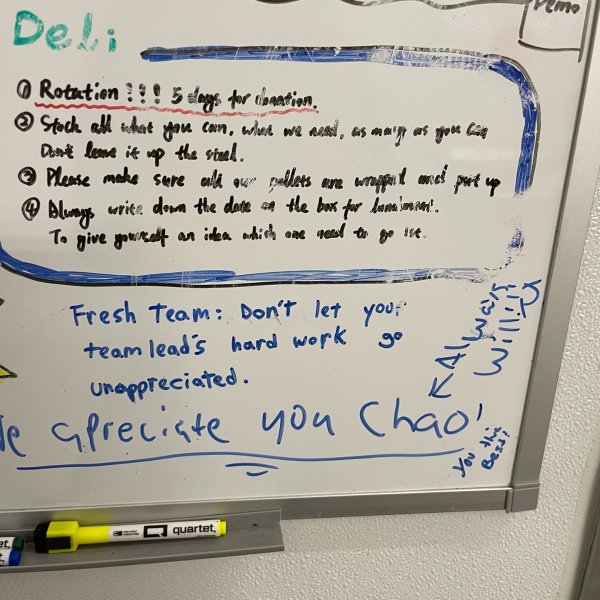 Memo
Deli
① Rotation !!! 5 days for donation.
② Stock all what you can, what we need, as many as you can
Don't leave it up the steel.
③ Please make sure all our pallets are wrapped and put up
④ Always write down the date on the box for
To give yourself an idea which one need to go 1st.
Fresh Team: Don't let your
teamlead's hard work go
unappreciated.
apreciate you Chao!
Always
Willis
You the
Best!
quartet.